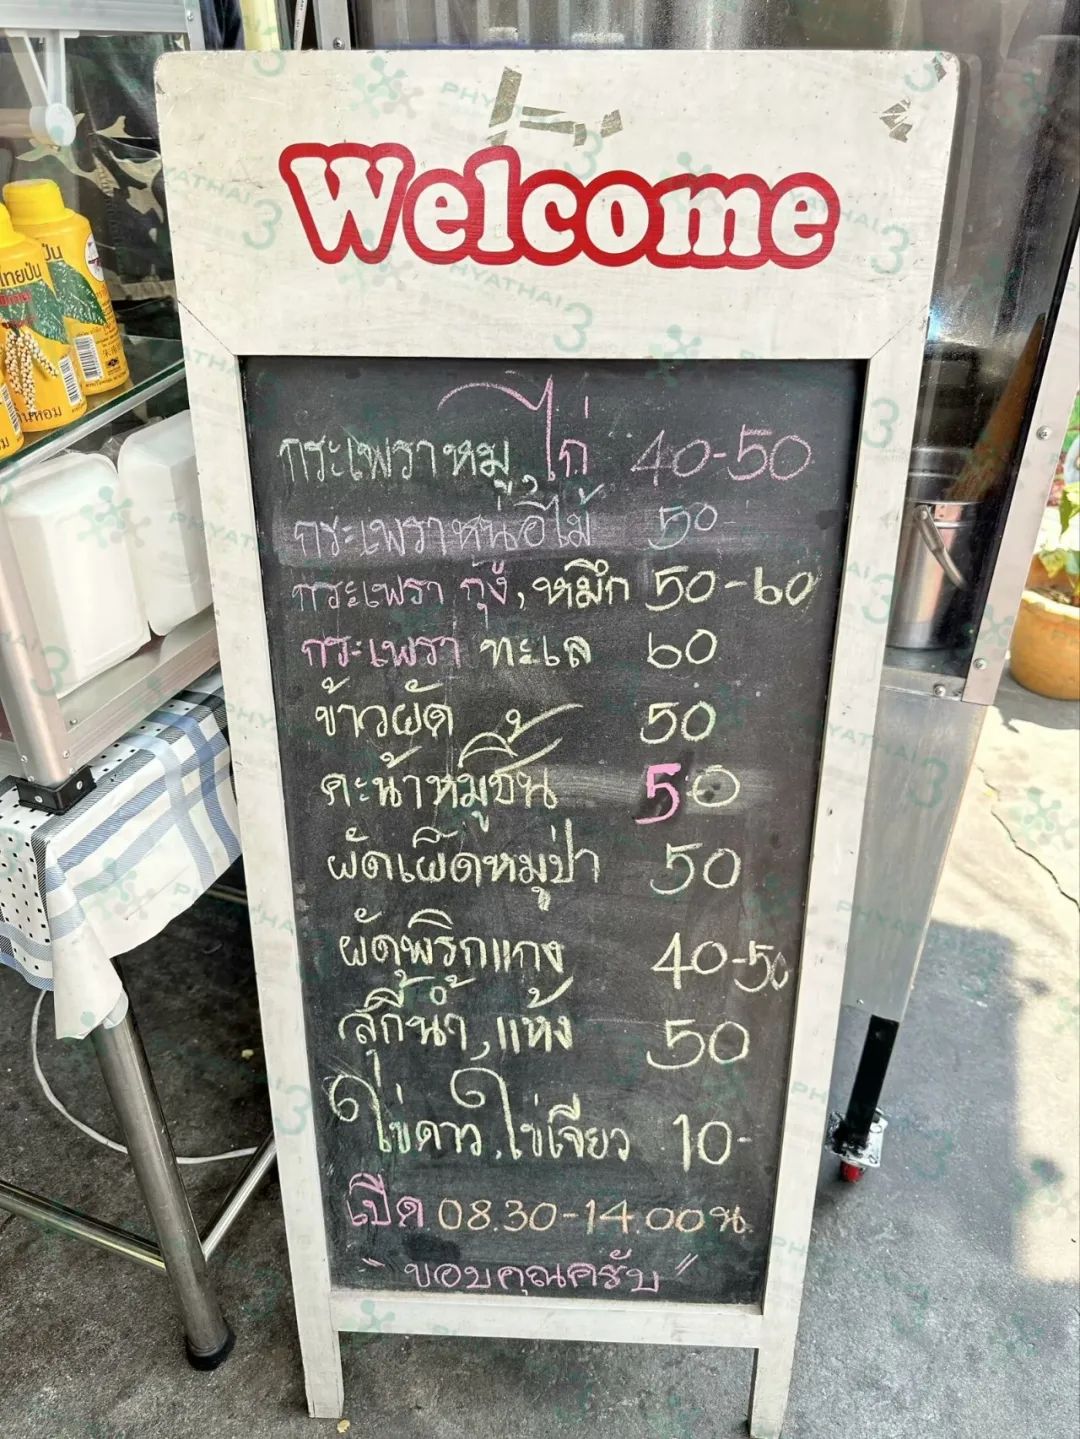 Welcome
กระเพราหมู, ไก่ 40-50
กระเพราหน่อไม้ 50
กระเพรา กุ้ง, หมึก 50-60
กระเพรา ทะเล 60
ข้าวผัด 50
คะน้าหมูชิ้น 50
ผัดเผ็ดหมูป่า 50
ผัดพริกแกง 40-50
สุกี้น้ำ, แห้ง 50
ไข่ดาว, ไข่เจียว 10-
เปิด 08.30-14.00 น.
"ขอบคุณครับ"
ไทยปุ่น
PHYATHAI 3